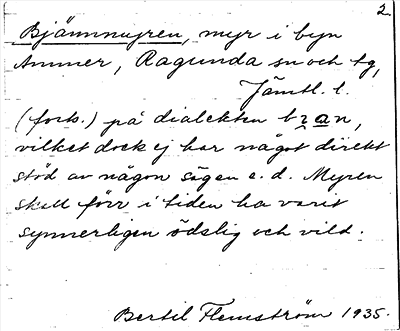 2.
Bjännmyren, myr i byn
Ammer, Ragunda sn och tg,
Jämtl. l.
(forts.) på dialekten
vilket dock ej har något direkt
stöd av någon sägen e. d. Myren
skall förr i tiden ha varit
synnerligen ödslig och vild.
Bertil Flemström 1935.